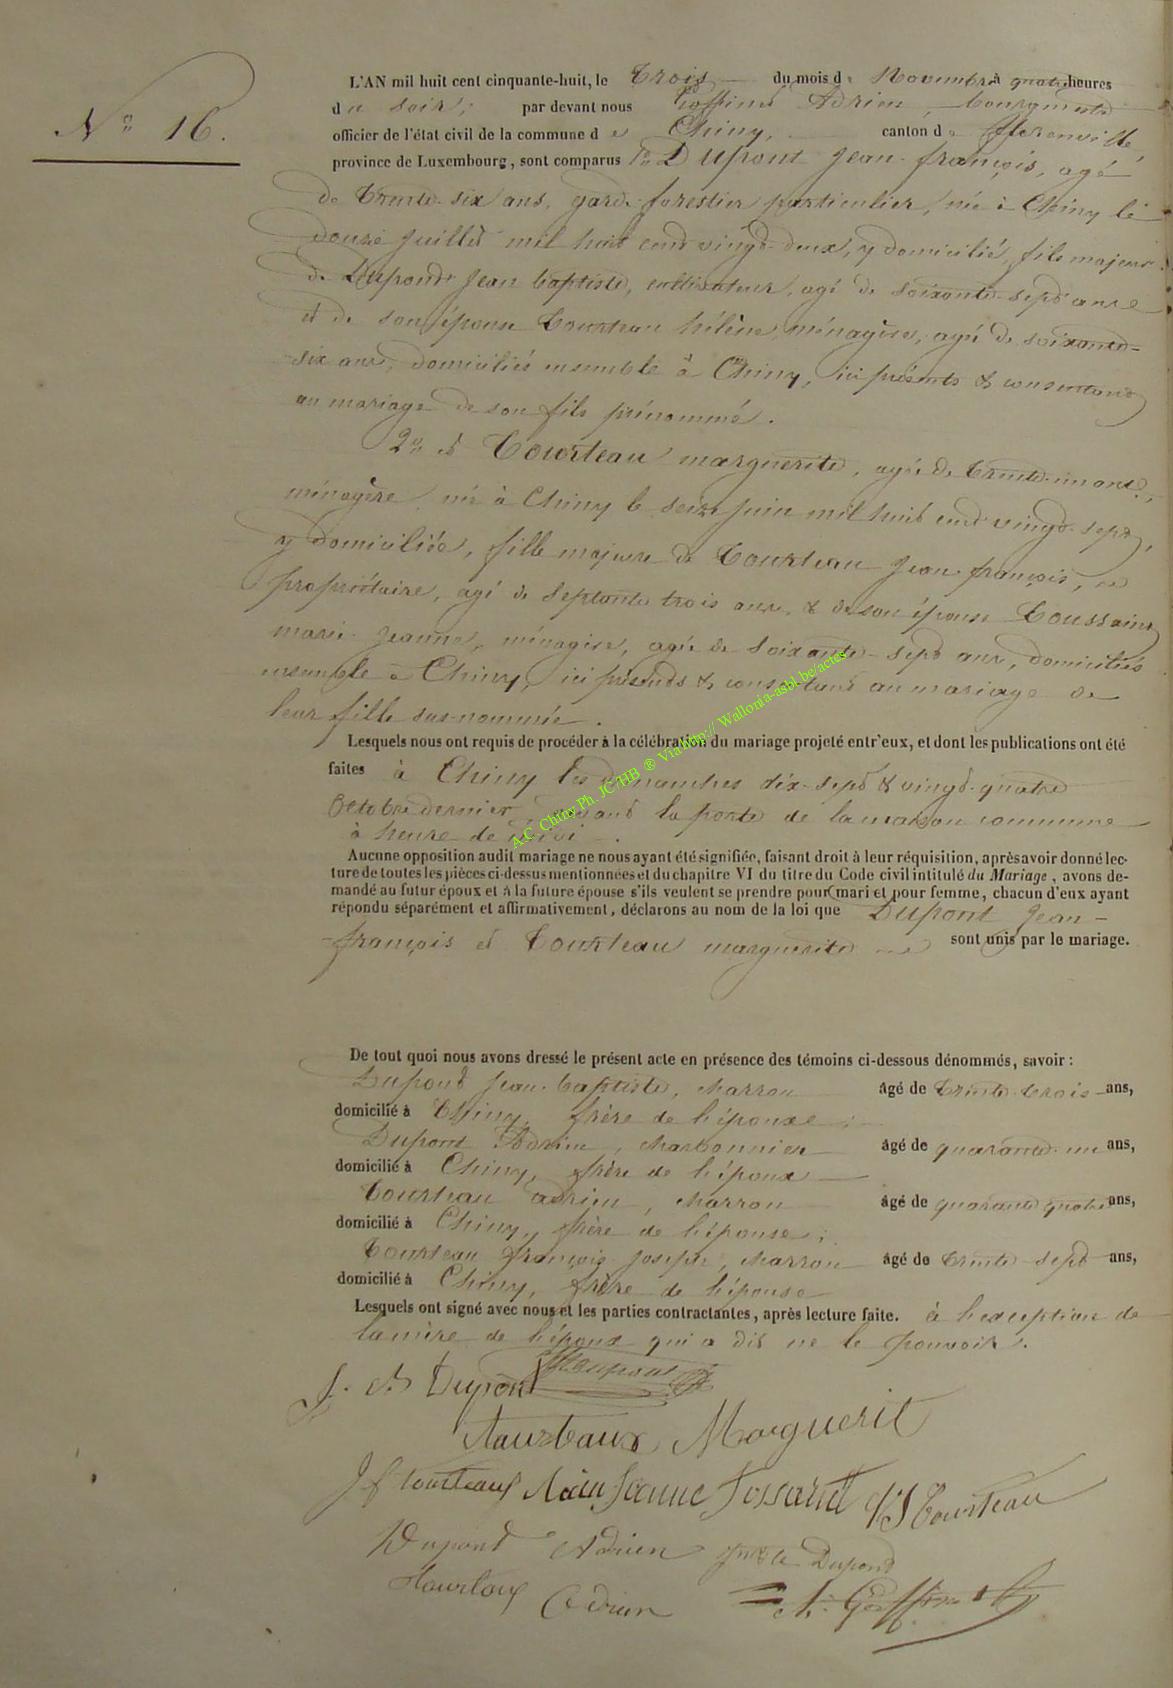 N° 16.
L'AN mil huit cent cinquante-huit, le trois du mois de Novembre à quatre heures
du soir, par devant nous Goffinet Adrien, bourgmestre
officier de l'état civil de la commune de Chiny, canton de fflorenville,
province de Luxembourg, sont comparus 1° Dupont Jean-françois, agé
de trente-six ans, garde-forestier particulier, née à Chiny le
douze Juillet mil huit cent vingt-deux, y domicilié, fils majeur
de Dupond Jean baptiste, cultivateur, agé de soixante-sept ans
et de son épouse Tourteau hélène, ménagère, agée de soixante-
six ans, domiciliés ensemble à Chiny, ici présents & consentans
au mariage de son fils prénommé.
2° et Tourteau marguerite, agée de trente-un ans,
ménagère, née à Chiny le seize juin mil huit cent vingt-sept,
y domiciliée, fille majeure de Tourteau Jean-françois,
propriétaire, agé de septante trois ans, & de son épouse Toussaint
marie-Jeanne, ménagère, agée de soixante-sept ans, domiciliés
ensemble à Chiny, ici présents & consentans au mariage de
leur fille sus-nommée.
Lesquels nous ont requis de procéder à la célébration du mariage projeté entr'eux, et dont les publications ont été
faites à Chiny les dimanches dix-sept & vingt-quatre
Octobre dernier, devant la porte de la maison commune
à heure de midi.
Aucune opposition audit mariage ne nous ayant été signifiée, faisant droit à leur réquisition, après avoir donné lec-
ture de toutes les pièces ci-dessus mentionnées et du chapitre VI du titre du Code civil intitulé du Mariage, avons de-
mandé au futur époux et à la future épouse s'ils veulent se prendre pour mari et pour femme, chacun d'eux ayant
répondu séparément et affirmativement, déclarons au nom de la loi que Dupont Jean-
françois et Tourteau marguerite sont unis par le mariage.
De tout quoi nous avons dressé le présent acte en présence des témoins ci-dessous dénommés, savoir :
Dupond Jean-baptiste, charron âgé de trente-trois ans,
domicilié à Chiny, frère de l'époux ;
Dupont Adrien, charbonnier âgé de quarante-un ans,
domicilié à Chiny, frère de l'époux
Tourteau adrien, charron âgé de quarante quatre ans,
domicilié à Chiny, frère de l'épouse ;
Tourteau françois-Joseph, charron âgé de trente-sept ans,
domicilié à Chiny, frère de l'épouse
Lesquels ont signé avec nous et les parties contractantes, après lecture faite. à l'exception de
la mère de l'époux qui a dit ne le pouvoir.
J. B Dupont Dupont
Taurtaux Marguerit
J f tourteaux Marie Janne Tossaint f J Tourteau
Dupont Adrien Dupond
Tourtaux Adrien A. Goffinet
A.C Chiny Ph. JC/HB ® Via http:// Wallonia-asbl.be/actes